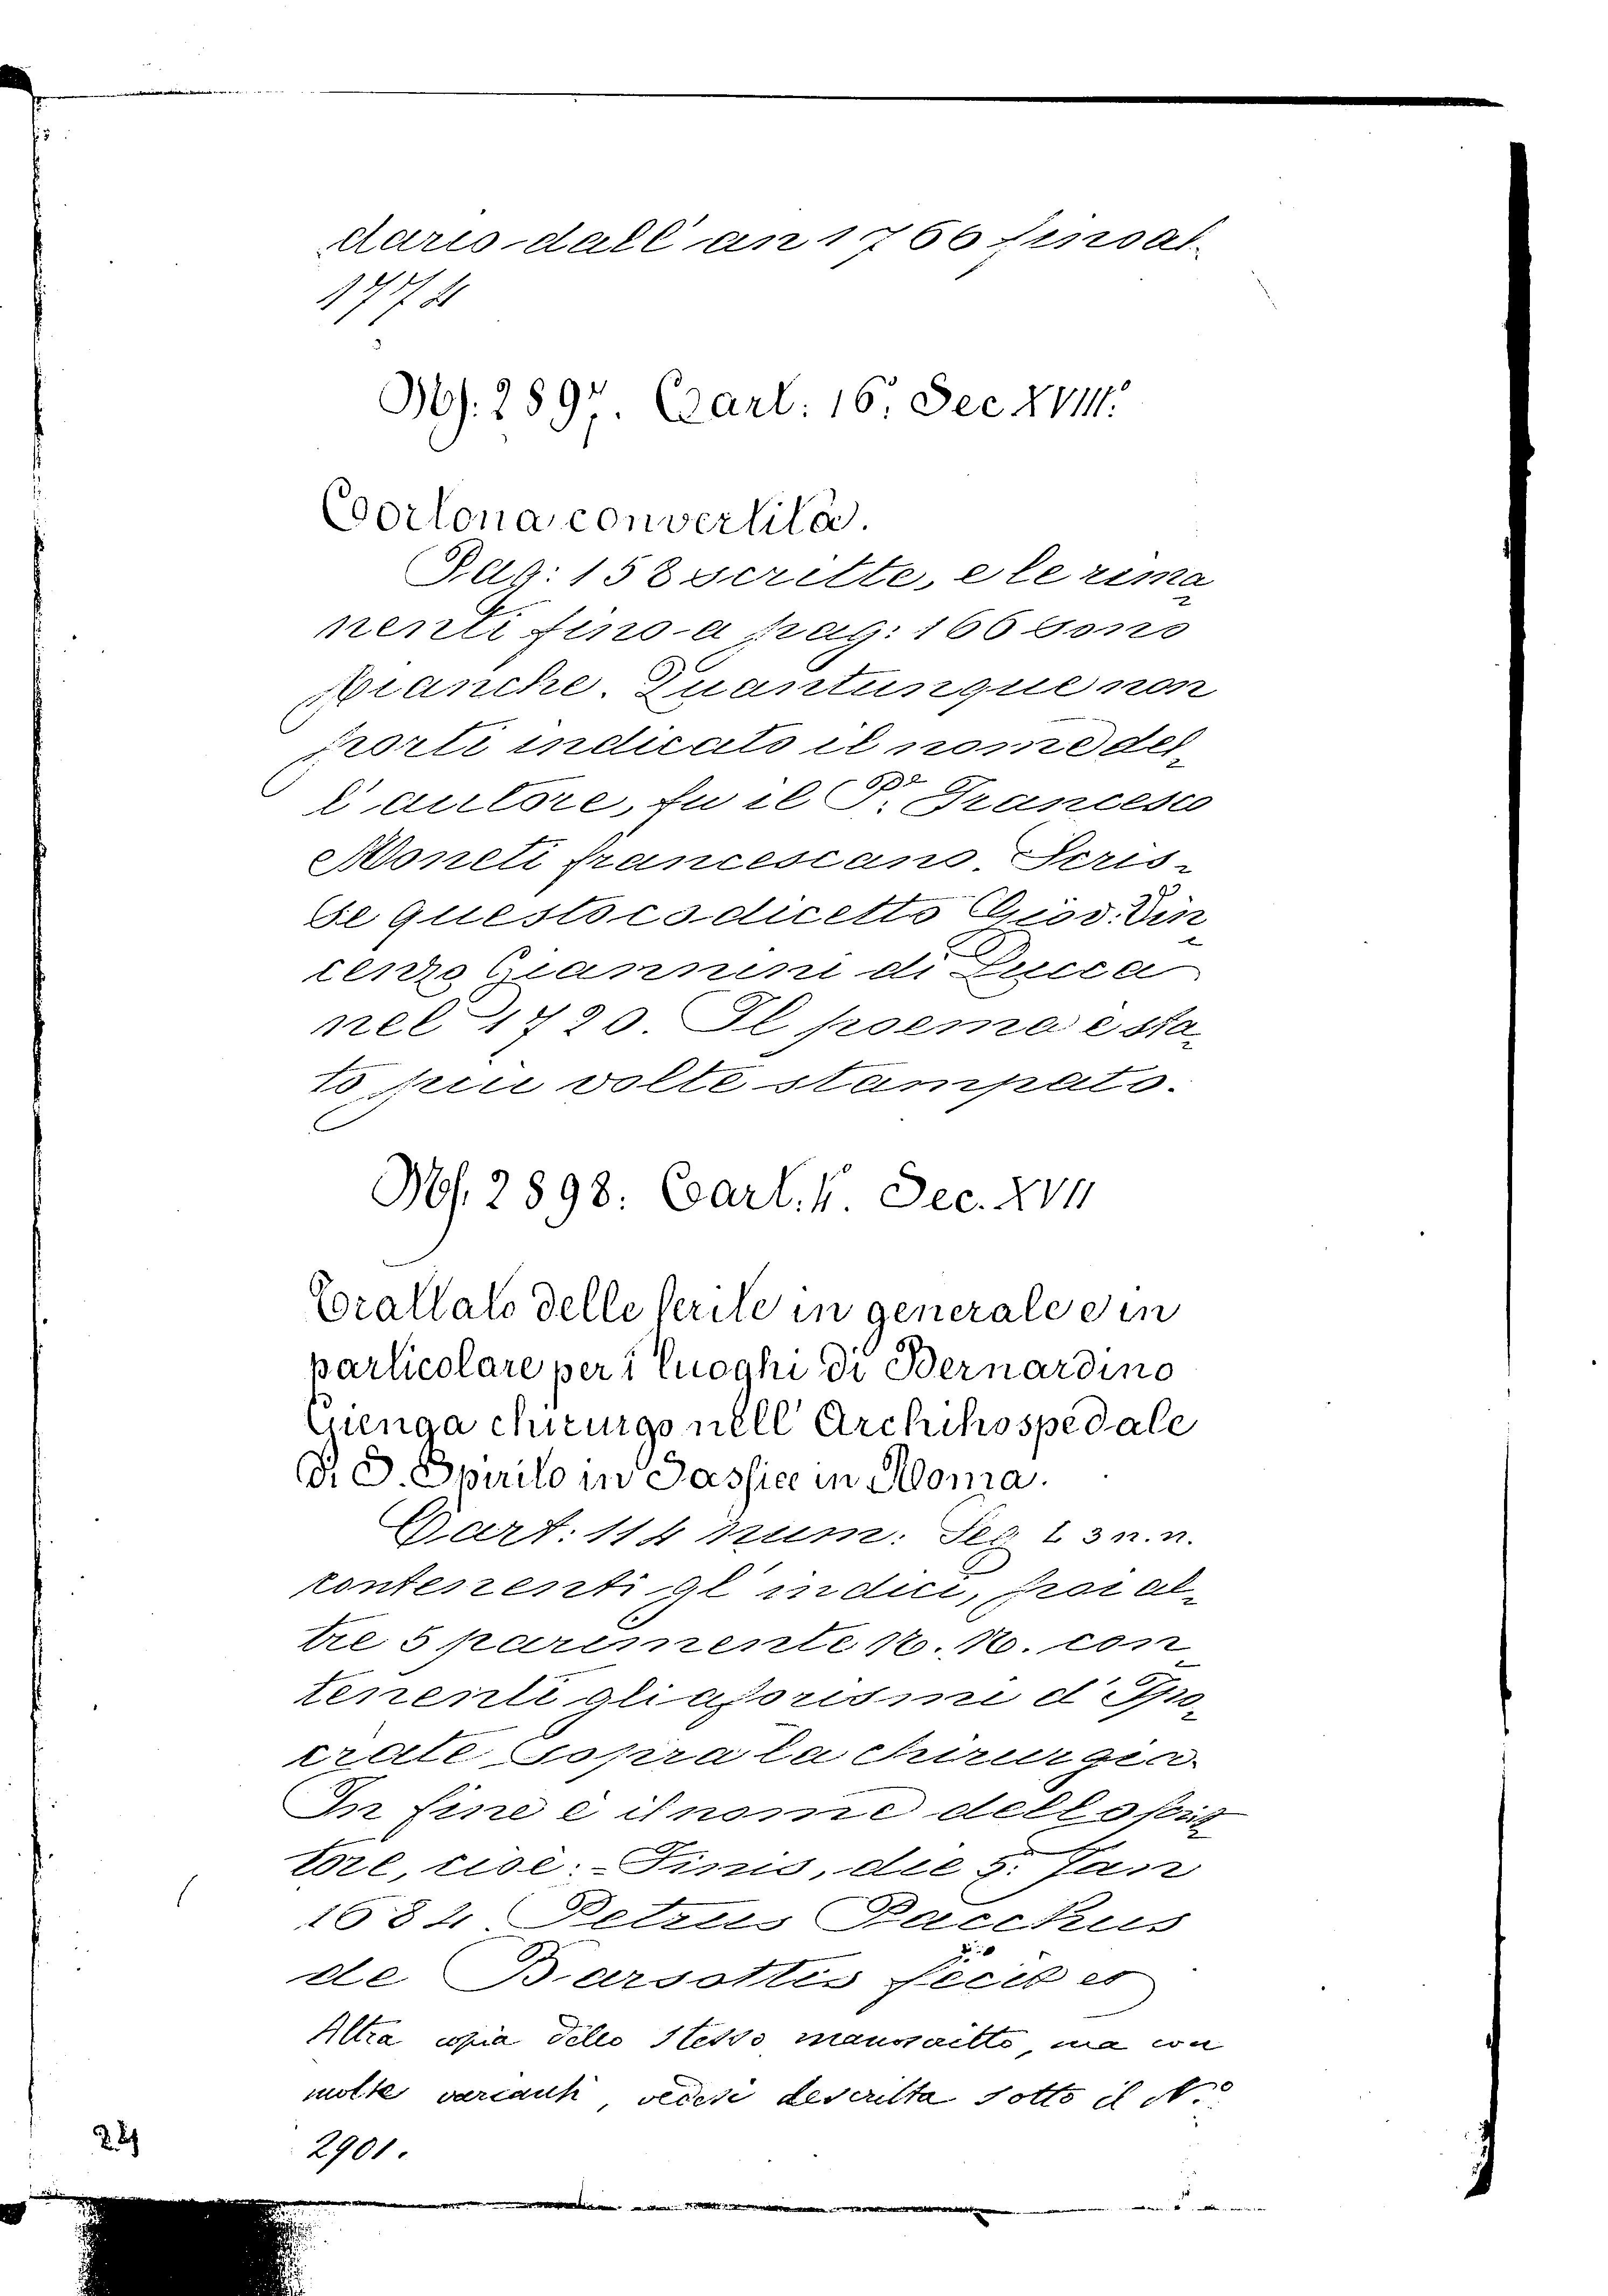 dario dall'an 1766 sinoal
1774
Ms. 2897. Cart: 16° Sec XVIII.
Cortona convertita.
Pag: 158 scritte, e le rima
nenti fino a pag: 166 sono
bianche. Quantunque non
porti indicato il nome del
l'autore, fu il P. Francesco
Moneti francescano. Scris-
se questo codicetto Giov. Vin
cenzo Giannini di Lucca
nel 1720. Il poema è sta
to piu volte stampato.
Ms. 2898. Cart. 4° Sec. XVII
Trattato delle ferite in generale e in
particolare per i luoghi di Bernardino
Gienga chirurgo nell' Archihospedale
di S. Spirito in Sassia in Roma.
Cart: 114 num: Seg 1 3 n. n.
contenenti gl' indici, poi al-
tre 5 parimente N. N. con
tenenti gli aforismi d' Ipo
crate sopra la chirurgia.
In fine è il nome dello scrit
tore, cioè: - Finis, die 5: Jan
1684 Petrus Pacchus
de Barsottis fecit et
Altra copia dello stesso manoscritto, ma con
molte varianti, vedesi descritta sotto il N.°
2901.
24